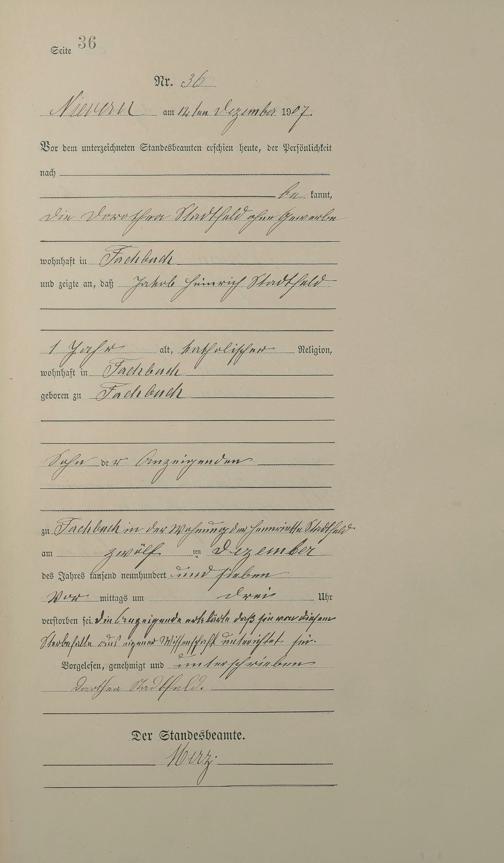 Seite 36
Nr. 36
Nievern am 12ten Dezember 1907.
Vor dem unterzeichneten Standesbeamten erschien heute, der Persönlichkeit
nach
be kannt,
die Dorothea Stadtfeld ohne Gewerbe
wohnhaft in Fachbach
und zeigte an, daß Jakob Heinrich Stadtfeld
1 Jahr alt, katholischer Religion,
wohnhaft in Fachbach
geboren zu Fachbach
Sohn der Anzeigenden
zu Fachbach in der Wohnung der Henriette Stadtfeld
am zwölften Dezember
des Jahres tausend neunhundert und sieben
Vor mittags um drei Uhr
verstorben sei. Die Anzeigende erklärte daß sie von diesem
Sterbefalle aus eigener Wissenschaft unterrichtet sei.
Vorgelesen, genehmigt und unterschrieben
Dorothea Stadtfeld.
Der Standesbeamte.
Merz.